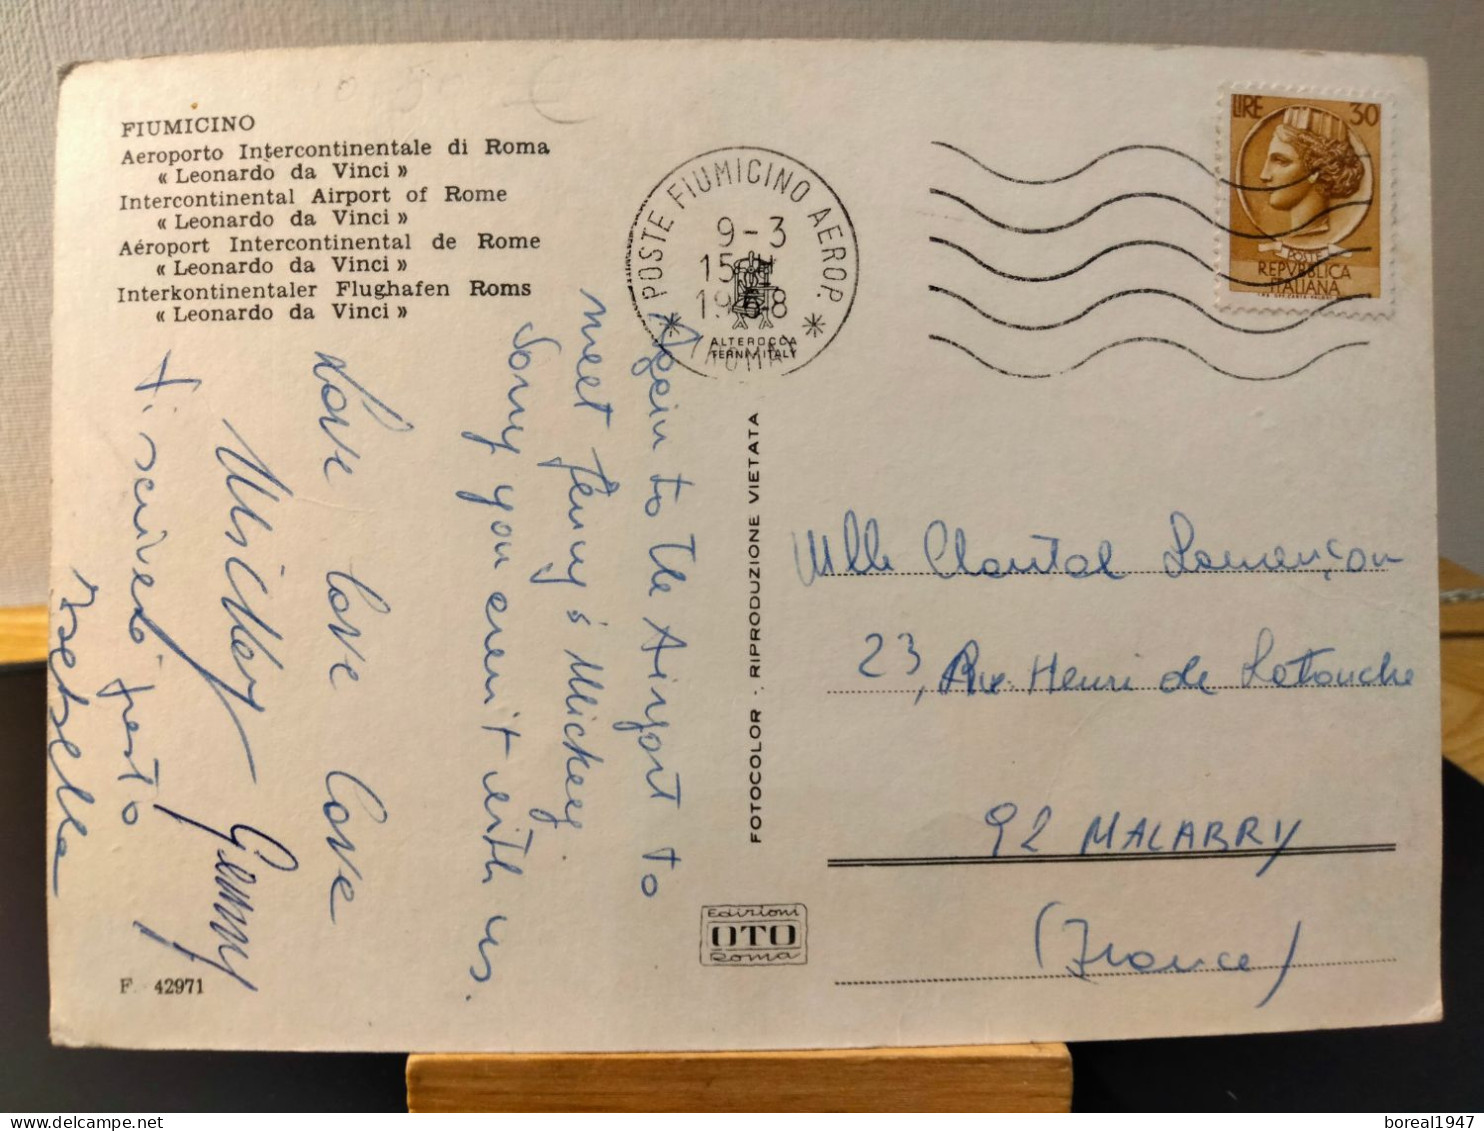 FIUMICINO
Aeroporto Intercontinentale di Roma
« Leonardo da Vinci »
Intercontinental Airport of Rome
« Leonardo da Vinci »
Aéroport Intercontinental de Rome
« Leonardo da Vinci »
Interkontinentaler Flughafen Roms
« Leonardo da Vinci »
Again to the Airport to
meet Jenny & Mickey
Sorry you aren't with us.
Love love love
Mickey Jenny
Ti scriverò presto
Isabella
F. 42971
POSTE FIUMICINO AEROP.
9-3
15
1968
ALTEROCCA
TERNI-ITALY
FOTOCOLOR - RIPRODUZIONE VIETATA
Edizioni
OTO
Roma
LIRE 30
POSTE
REPVBBLICA
ITALIANA
Mlle Chantal Lamençon
23, Rue Henri de Latouche
92 MALABRY
(France)
boreal1947